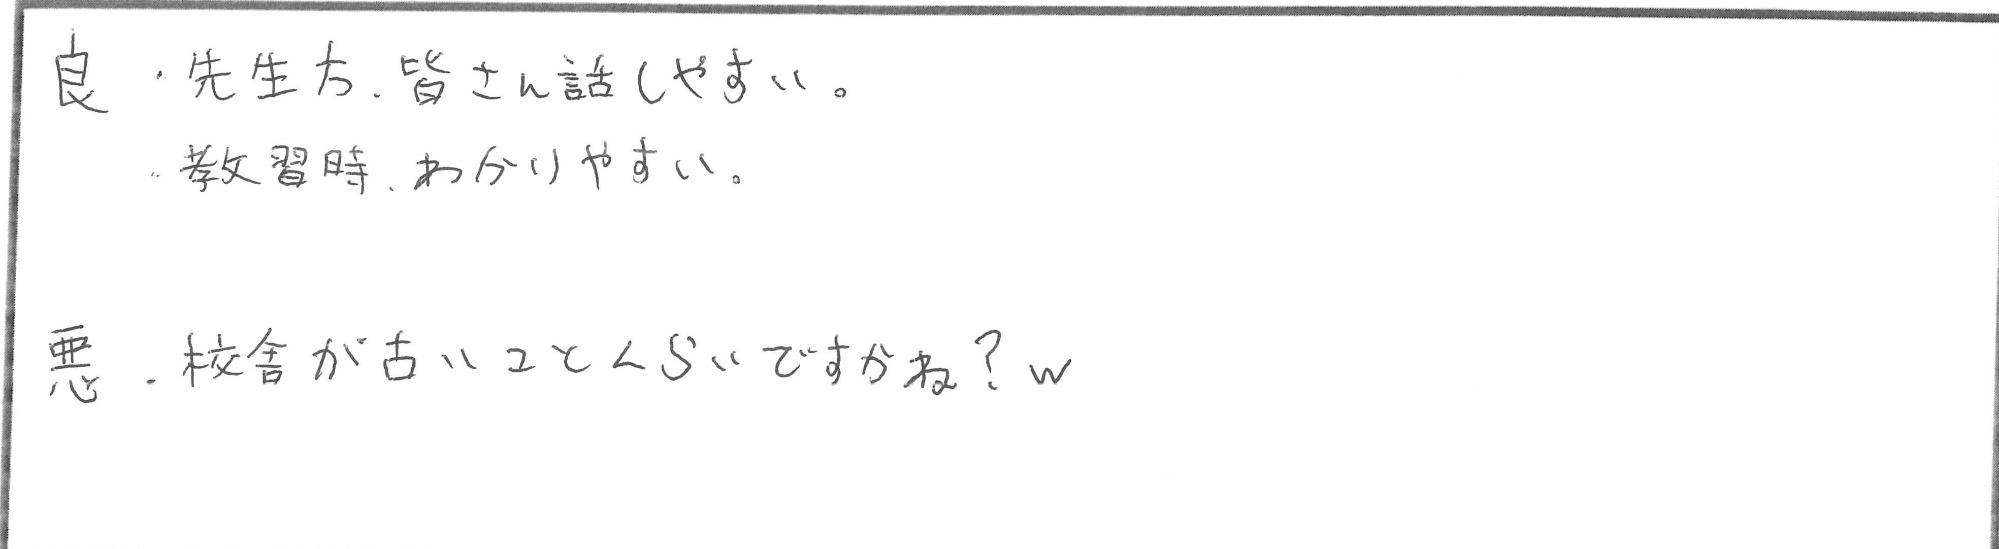 良 ・先生方、皆さん話しやすい。
・教習時、わかりやすい。
悪 ・校舎が古いことくらいですかね？w